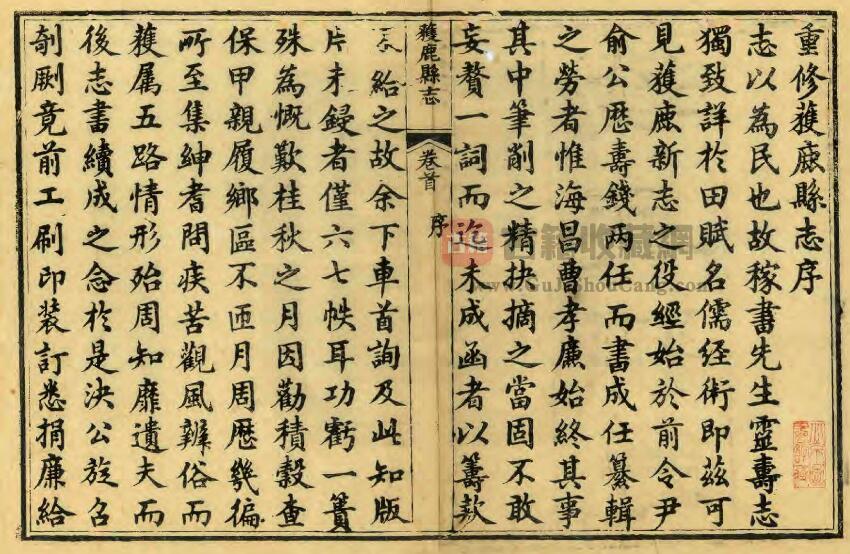 重修獲鹿縣志序
志以為民也故稼書先生靈壽志
獨致詳於田賦名儒經術即茲可
見獲鹿新志之役經始於前令尹
俞公歷壽錢兩任而書成任纂輯
之勞者惟海昌曹孝廉始終其事
其中筆削之精抉摘之當固不敢
妄贅一詞而迄未成函者以籌款
獲鹿縣志 卷首 序
不給之故余下車首詢及此知版
片未鋟者僅六七帙耳功虧一簣
殊為慨歎桂秋之月因勸積穀查
保甲親履鄉區不匝月周歷幾徧
所至集紳耆問疾苦觀風辨俗而
獲属五路情形殆周知靡遺夫而
後志書續成之念於是決公旋召
剞劂竟前工刷印裝訂悉捐廉給
古籍收藏網
www.GuJiShouCang.com